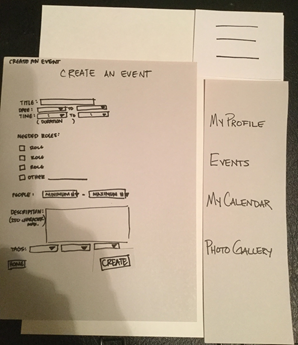 CREATE AN EVENT
CREATE AN EVENT
TITLE:
DATE: TO
TIME: TO
(DURATION)
NEEDED ROLES:
ROLE
ROLE
ROLE
OTHER
PEOPLE: MINIMUM # - MAXIMUM #
DESCRIPTION:
(150-CHARACTER
MAX.)
TAGS:
HOME CREATE
MY PROFILE
EVENTS
MY CALENDAR
PHOTO GALLERY